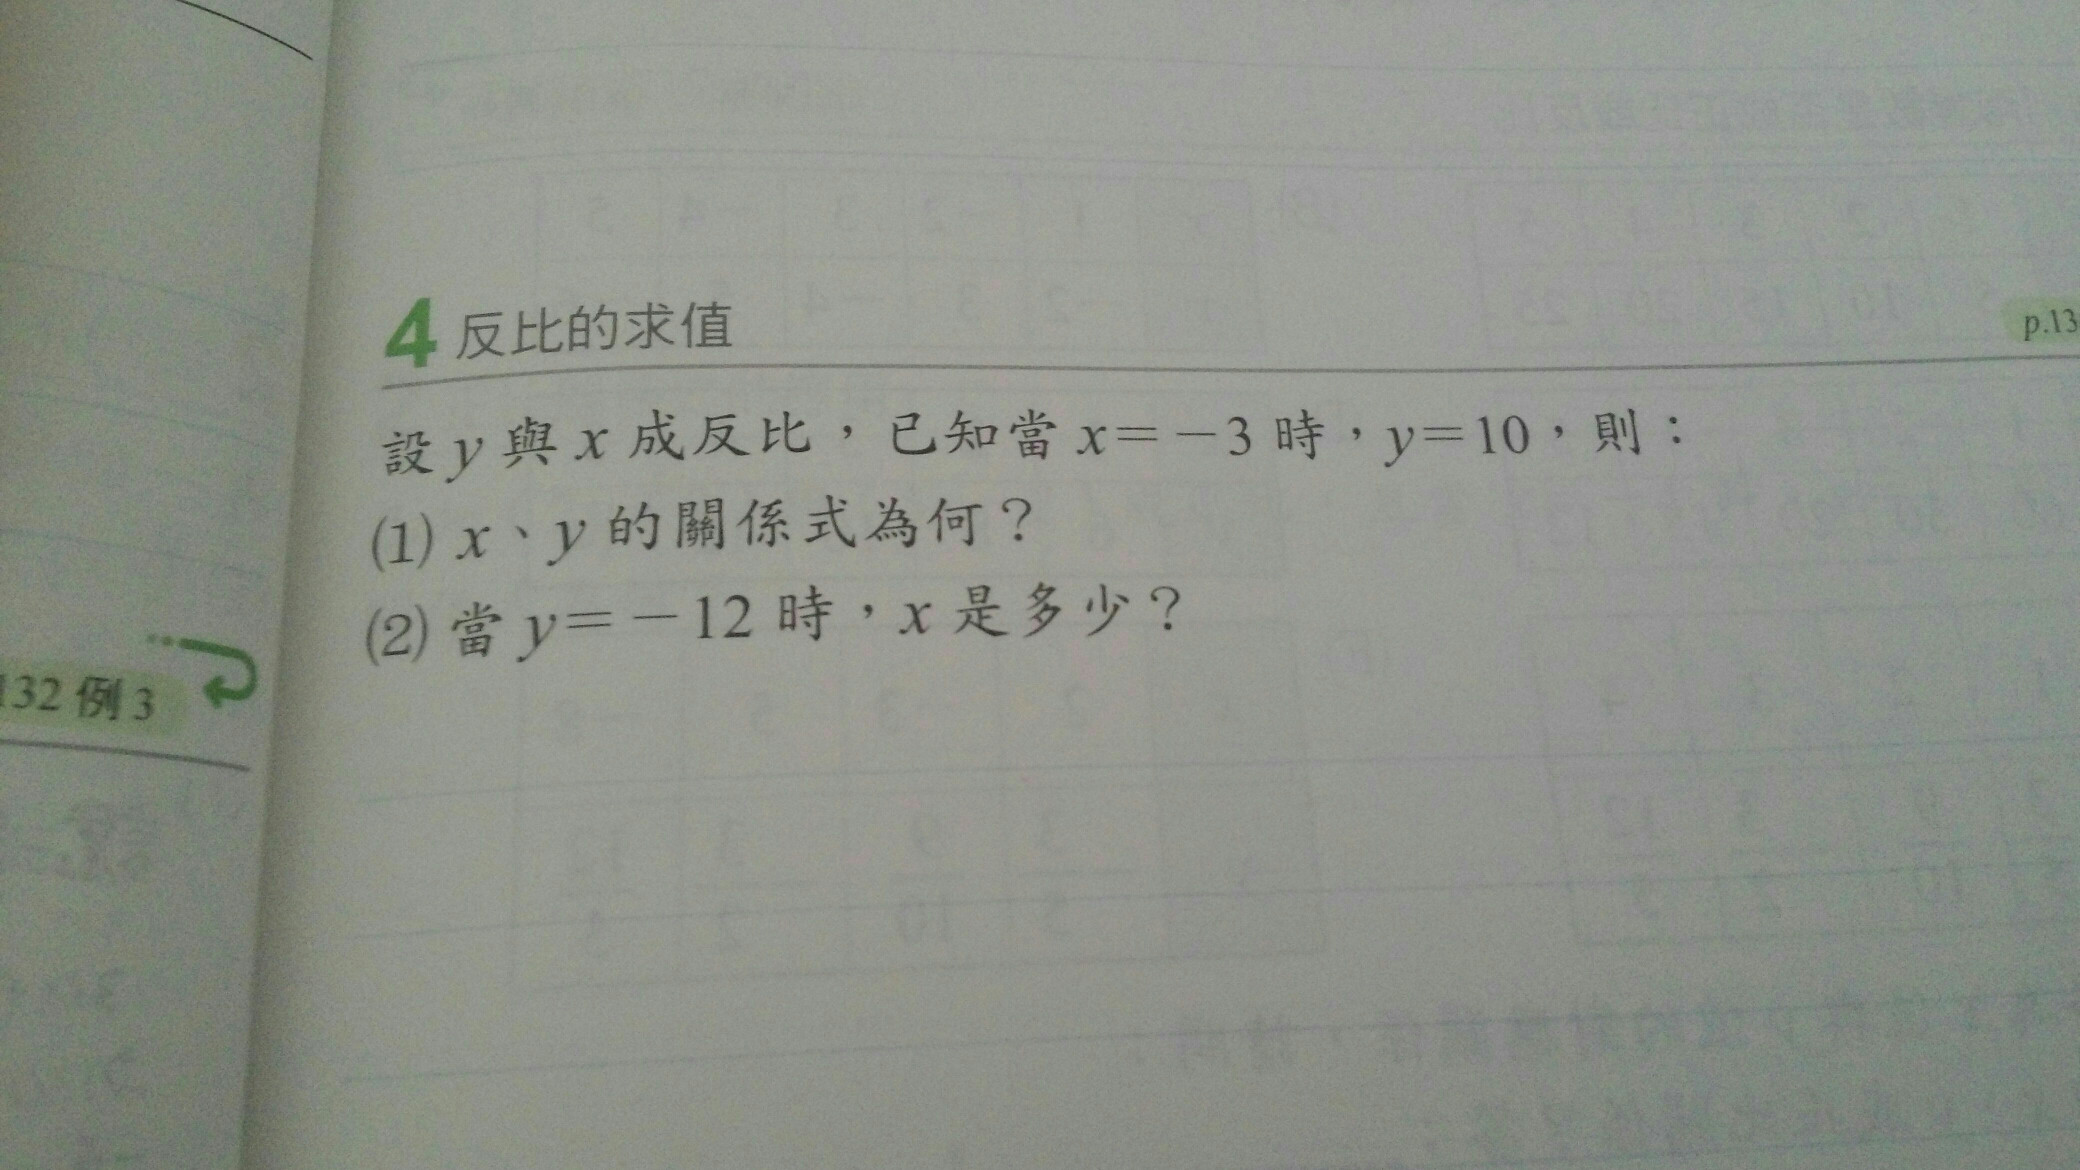 4 反比的求值
p.13
設 y 與 x 成反比，已知當 x=-3 時，y=10，則：
(1) x、y 的關係式為何？
(2) 當 y=-12 時，x 是多少？
132 例 3